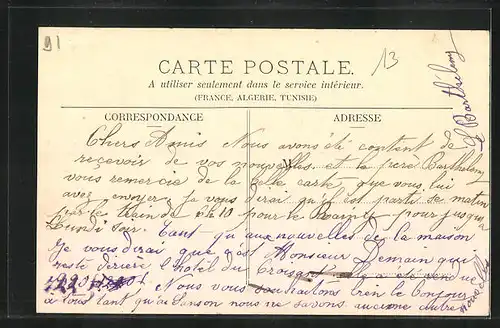 91
13
CARTE POSTALE.
A utiliser seulement dans le service intérieur.
(FRANCE, ALGERIE, TUNISIE)
CORRESPONDANCE
ADRESSE
Chers Amis Nous avons été content de
recevoir de vos nouvelles, et le frere Barthelemy
vous remercie de la belle carte que vous lui
avez envoyer, Je vous dirai qu'il est parti se matin
par le train de 10 pour le pour jusqua
Lundi soir. Tant qu'aux nouvelles de la maison
Je vous dirai que c'est Monsieur Lemain qui
reste derière l'hotel du Croissant elle a été vendue
Nous vous souhaitons bien le Bonjour
a tous tant qu'a Sanson nous ne savons aucune autre
nouvelle
Barthélemy